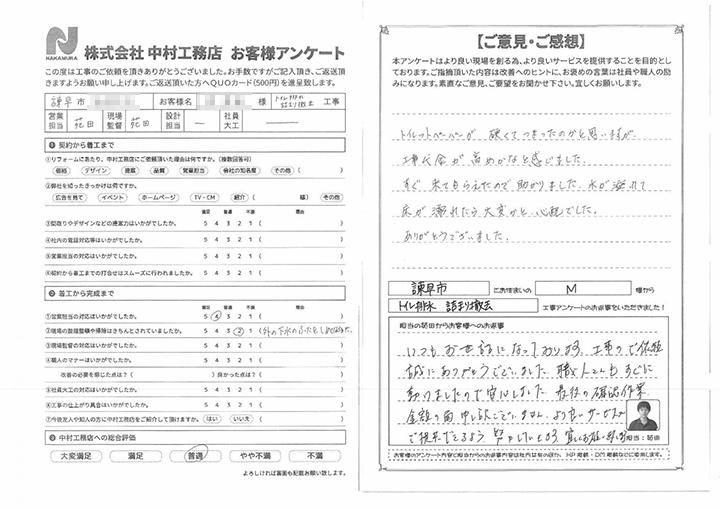 NAKAMURA
株式会社 中村工務店 お客様アンケート
この度は工事のご依頼を頂きありがとうございました。お手数ですがご記入頂き、ご返送頂
きますようお願い申し上げます。ご返送頂いた方へQUOカード(500円)を進呈致します。
諫早市 お客様名 様 トイレ排水詰まり撤去 工事
営業担当 苑田 現場監督 苑田 設計担当 — 社員大工 —
❶ 契約から着工まで
①リフォームにあたり、中村工務店にご依頼頂いた理由は何ですか。(複数回答可)
価格 デザイン 提案 品質 営業担当 会社の知名度 その他 ( )
②弊社を知ったきっかけは何ですか。
広告を見て イベント ホームページ TV・CM 紹介 ( 様) その他
満足 普通 不満 理由
③間取りやデザインなどの提案力はいかがでしたか。 5 4 3 2 1 ( )
④社内の電話対応等はいかがでしたか。 5 4 3 2 1 ( )
⑤営業担当の対応はいかがでしたか。 5 4 3 2 1 ( )
⑥契約から着工までの打合せはスムーズに行われましたか。 5 4 3 2 1 ( )
❷ 着工から完成まで
満足 普通 不満 理由
①営業担当の対応はいかがでしたか。 5 4 3 2 1 ( )
②現場の整理整頓や掃除はきちんとされていましたか。 5 4 3 2 1 (外の下水のふたを )
③現場監督の対応はいかがでしたか。 5 4 3 2 1 ( )
④職人のマナーはいかがでしたか。 5 4 3 2 1 ( )
改善の必要を感じた点は? ( ) 良かった点は? ( )
⑤社員大工の対応はいかがでしたか。 5 4 3 2 1 ( )
⑥工事の仕上がり具合はいかがでしたか。 5 4 3 2 1 ( )
⑦今後友人や知人の方に中村工務店をご紹介して頂けますか。 はい いいえ ( )
❸ 中村工務店への総合評価
大変満足 満足 普通 やや不満 不満
よろしければ裏面も記載お願い致します。
【ご意見・ご感想】
本アンケートはより良い現場を創る為、より良いサービスを提供することを目的とし
ております。ご指摘頂いた内容は改善へのヒントに、お褒めの言葉は社員や職人の励
みになります。素直なご意見、ご要望をお聞かせ下さい。宜しくお願いします。
トイレットペーパーが 硬くてつまったのかと思いますが、
工事代金が高めかなと感じました。
すぐ来てもらえたので助かりました。水が溢れて
床が濡れたら大変かと心配でした。
ありがとうございました。
諫早市 にお住まいの M 様から
トイレ排水 詰まり撤去 工事アンケートのお返事をいただきました!
担当の苑田からお客様へのお返事
いつもお世話になっております。工事のご依頼
誠にありがとうございました。職人さんもすぐに
動けましたので安心しました。最後の確認作業、
金額の面 申し訳ございません。より良いサービスが
ご提供できるよう 努力していきます。
担当:苑田
お客様のアンケート内容と担当からのお返事内容は社内共有のほか、HP掲載・DM掲載などに使用します。